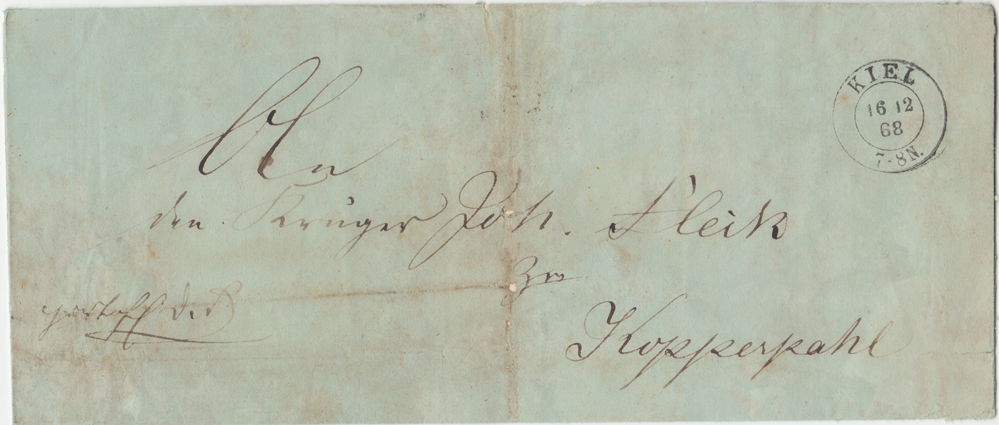 KIEL
16 12
68
7-8N.
An
den Krüger Joh. Fleik
zu
Kopperpahl